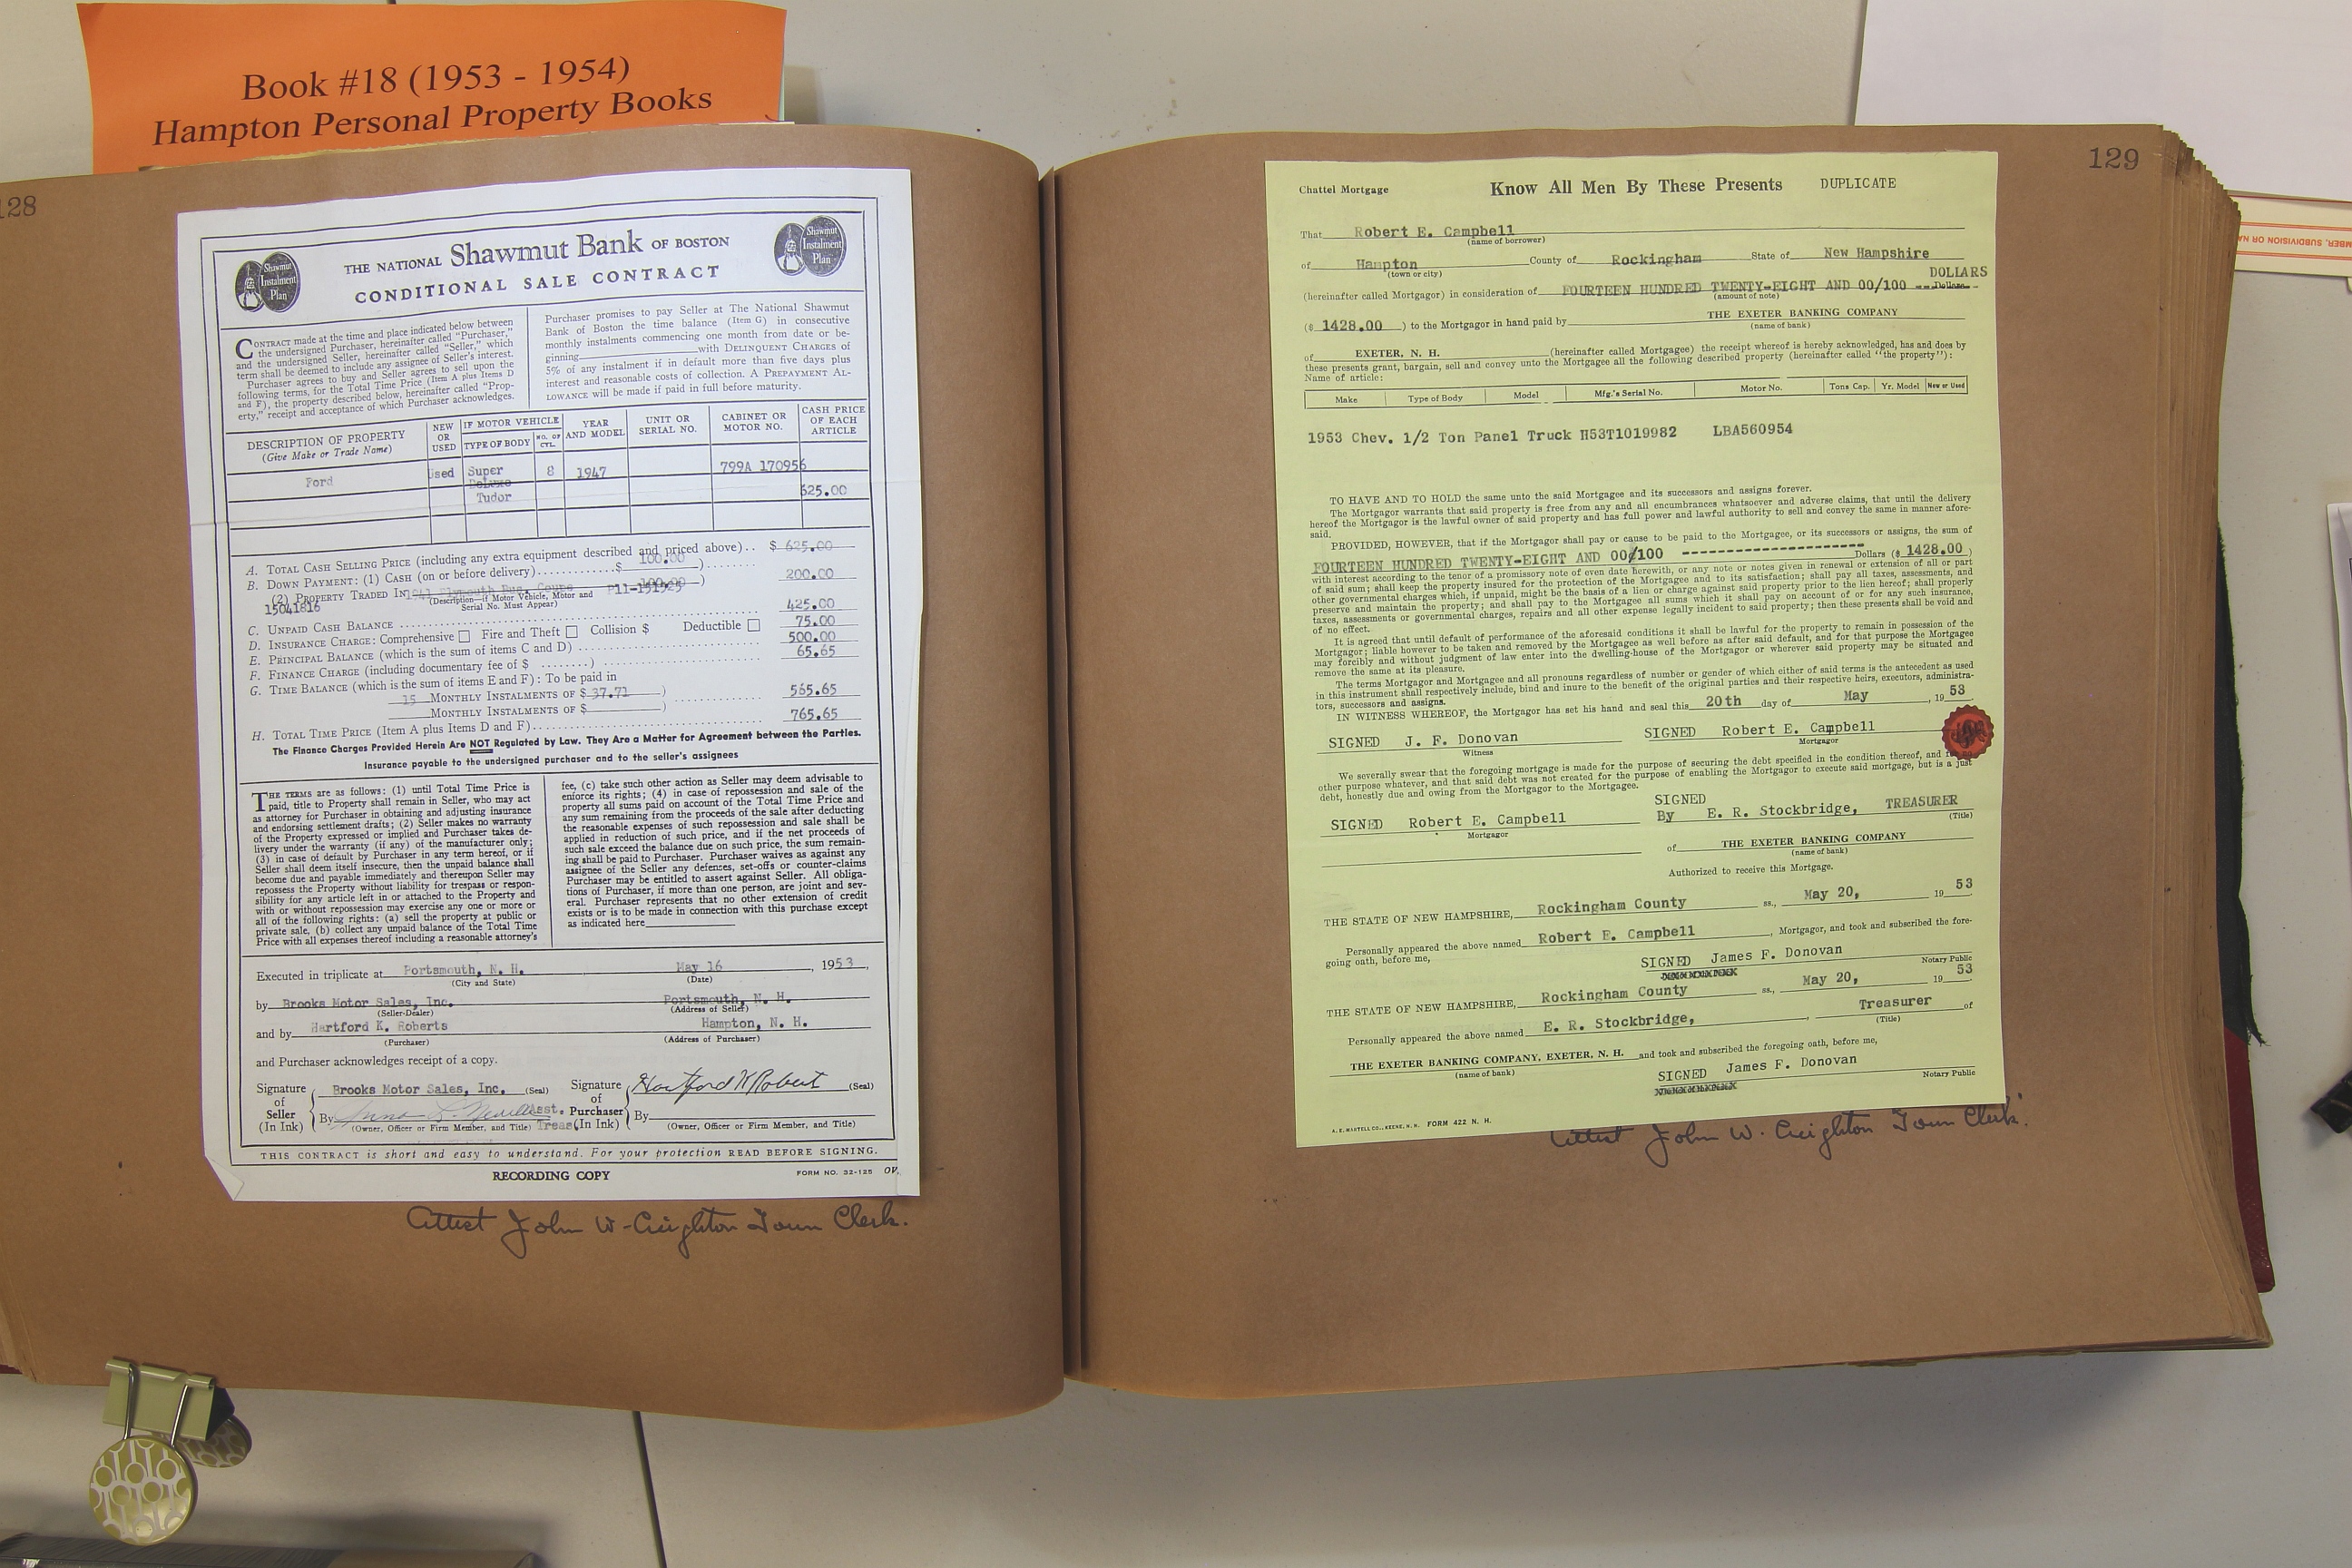 Book #18 (1953 - 1954)
Hampton Personal Property Books
128
Shawmut
Instalment
Plan
THE NATIONAL Shawmut Bank OF BOSTON
CONDITIONAL SALE CONTRACT
Shawmut
Instalment
Plan
CONTRACT made at the time and place indicated below between
the undersigned Purchaser, hereinafter called "Purchaser,"
and the undersigned Seller, hereinafter called "Seller," which
term shall be deemed to include any assignee of Seller's interest.
Purchaser agrees to buy and Seller agrees to sell upon the
following terms, for the Total Time Price (Item A plus Items D
and F), the property described below, hereinafter called "Prop-
erty," receipt and acceptance of which Purchaser acknowledges.
Purchaser promises to pay Seller at The National Shawmut
Bank of Boston the time balance (Item G) in consecutive
monthly instalments commencing one month from date or be-
ginning with DELINQUENT CHARGES of
5% of any instalment if in default more than five days plus
interest and reasonable costs of collection. A PREPAYMENT AL-
LOWANCE will be made if paid in full before maturity.
DESCRIPTION OF PROPERTY
(Give Make or Trade Name)
NEW
OR
USED
IF MOTOR VEHICLE
TYPE OF BODY
NO. OF
CYL.
YEAR
AND MODEL
UNIT OR
SERIAL NO.
CABINET OR
MOTOR NO.
CASH PRICE
OF EACH
ARTICLE
Ford Used Super 8 1947 799A 170956
Deluxe
Tudor 625.00
A. TOTAL CASH SELLING PRICE (including any extra equipment described and priced above).. $ 625.00
B. DOWN PAYMENT: (1) CASH (on or before delivery)............$ 100.00 )........
(2) PROPERTY TRADED IN 1941 Plymouth Bus. Coupe P11-151925 100.00 ) 200.00
15041816 (Description—if Motor Vehicle, Motor and
Serial No. Must Appear)
C. UNPAID CASH BALANCE 425.00
D. INSURANCE CHARGE: Comprehensive Fire and Theft Collision $ Deductible 75.00
E. PRINCIPAL BALANCE (which is the sum of items C and D) 500.00
F. FINANCE CHARGE (including documentary fee of $ ........) 65.65
G. TIME BALANCE (which is the sum of items E and F): To be paid in
15 MONTHLY INSTALMENTS OF $ 37.71 ) 565.65
MONTHLY INSTALMENTS OF $ )
H. TOTAL TIME PRICE (Item A plus Items D and F) 765.65
The Finance Charges Provided Herein Are NOT Regulated by Law. They Are a Matter for Agreement between the Parties.
Insurance payable to the undersigned purchaser and to the seller's assignees
THE TERMS are as follows: (1) until Total Time Price is
paid, title to Property shall remain in Seller, who may act
as attorney for Purchaser in obtaining and adjusting insurance
and endorsing settlement drafts; (2) Seller makes no warranty
of the Property expressed or implied and Purchaser takes de-
livery under the warranty (if any) of the manufacturer only;
(3) in case of default by Purchaser in any term hereof, or if
Seller shall deem itself insecure, then the unpaid balance shall
become due and payable immediately and thereupon Seller may
repossess the Property without liability for trespass or respon-
sibility for any article left in or attached to the Property and
with or without repossession may exercise any one or more or
all of the following rights: (a) sell the property at public or
private sale, (b) collect any unpaid balance of the Total Time
Price with all expenses thereof including a reasonable attorney's
fee, (c) take such other action as Seller may deem advisable to
enforce its rights; (4) in case of repossession and sale of the
property all sums paid on account of the Total Time Price and
any sum remaining from the proceeds of the sale after deducting
the reasonable expenses of such repossession and sale shall be
applied in reduction of such price, and if the net proceeds of
such sale exceed the balance due on such price, the sum remain-
ing shall be paid to Purchaser. Purchaser waives as against any
assignee of the Seller any defenses, set-offs or counter-claims
Purchaser may be entitled to assert against Seller. All obliga-
tions of Purchaser, if more than one person, are joint and sev-
eral. Purchaser represents that no other extension of credit
exists or is to be made in connection with this purchase except
as indicated here
Executed in triplicate at Portsmouth, N. H. May 16, 1953,
(City and State) (Date)
by Brooks Motor Sales, Inc. Portsmouth, N. H.
(Seller-Dealer) (Address of Seller)
and by Hartford K. Roberts Hampton, N. H.
(Purchaser) (Address of Purchaser)
and Purchaser acknowledges receipt of a copy.
Signature
of
Seller
(In Ink)
Brooks Motor Sales, Inc. (Seal)
By Asst.
(Owner, Officer or Firm Member, and Title) Treas.
Signature
of
Purchaser
(In Ink)
Hartford K Robert (Seal)
By
(Owner, Officer or Firm Member, and Title)
THIS CONTRACT is short and easy to understand. For your protection READ BEFORE SIGNING.
RECORDING COPY FORM NO. 32-125 OV.
Attest John W. Creighton Town Clerk.
129
Chattel Mortgage Know All Men By These Presents DUPLICATE
That Robert E. Campbell
(name of borrower)
of Hampton County of Rockingham State of New Hampshire
(town or city)
DOLLARS
(hereinafter called Mortgagor) in consideration of FOURTEEN HUNDRED TWENTY-EIGHT AND 00/100 -- Dollars
(amount of note)
($ 1428.00 ) to the Mortgagor in hand paid by THE EXETER BANKING COMPANY
(name of bank)
of EXETER, N. H. (hereinafter called Mortgagee) the receipt whereof is hereby acknowledged, has and does by
these presents grant, bargain, sell and convey unto the Mortgagee all the following described property (hereinafter called "the property"):
Name of article:
Make Type of Body Model Mfg.'s Serial No. Motor No. Tons Cap. Yr. Model New or Used
1953 Chev. 1/2 Ton Panel Truck H53T1019982 LBA560954
TO HAVE AND TO HOLD the same unto the said Mortgagee and its successors and assigns forever.
The Mortgagor warrants that said property is free from any and all encumbrances whatsoever and adverse claims, that until the delivery
hereof the Mortgagor is the lawful owner of said property and has full power and lawful authority to sell and convey the same in manner afore-
said.
PROVIDED, HOWEVER, that if the Mortgagor shall pay or cause to be paid to the Mortgagee, or its successors or assigns, the sum of
FOURTEEN HUNDRED TWENTY-EIGHT AND 00/100 --------------------- Dollars ($ 1428.00 )
with interest according to the tenor of a promissory note of even date herewith, or any note or notes given in renewal or extension of all or part
of said sum; shall keep the property insured for the protection of the Mortgagee and to its satisfaction; shall pay all taxes, assessments, and
other governmental charges which, if unpaid, might be the basis of a lien or charge against said property prior to the lien hereof; shall properly
preserve and maintain the property; and shall pay to the Mortgagee all sums which it shall pay on account of or for any such insurance,
taxes, assessments or governmental charges, repairs and all other expense legally incident to said property; then these presents shall be void and
of no effect.
It is agreed that until default of performance of the aforesaid conditions it shall be lawful for the property to remain in possession of the
Mortgagor; liable however to be taken and removed by the Mortgagee as well before as after said default, and for that purpose the Mortgagee
may forcibly and without judgment of law enter into the dwelling-house of the Mortgagor or wherever said property may be situated and
remove the same at its pleasure.
The terms Mortgagor and Mortgagee and all pronouns regardless of number or gender of which either of said terms is the antecedent as used
in this instrument shall respectively include, bind and inure to the benefit of the original parties and their respective heirs, executors, administra-
tors, successors and assigns.
IN WITNESS WHEREOF, the Mortgagor has set his hand and seal this 20th day of May, 19 53
SIGNED J. F. Donovan SIGNED Robert E. Campbell
Witness Mortgagor
We severally swear that the foregoing mortgage is made for the purpose of securing the debt specified in the condition thereof, and for no
other purpose whatever, and that said debt was not created for the purpose of enabling the Mortgagor to execute said mortgage, but is a just
debt, honestly due and owing from the Mortgagor to the Mortgagee.
SIGNED
SIGNED Robert E. Campbell By E. R. Stockbridge, TREASURER
Mortgagor (Title)
of THE EXETER BANKING COMPANY
(name of bank)
Authorized to receive this Mortgage.
THE STATE OF NEW HAMPSHIRE, Rockingham County ss., May 20, 19 53
Personally appeared the above named Robert E. Campbell, Mortgagor, and took and subscribed the fore-
going oath, before me,
SIGNED James F. Donovan
Notary Public
THE STATE OF NEW HAMPSHIRE, Rockingham County ss., May 20, 19 53
Personally appeared the above named E. R. Stockbridge, Treasurer of
(Title)
THE EXETER BANKING COMPANY, EXETER, N. H. and took and subscribed the foregoing oath, before me,
(name of bank)
SIGNED James F. Donovan
Notary Public
A. E. MARTELL CO., KEENE, N. H. FORM 422 N. H.
Attest John W. Creighton Town Clerk.
MBER, SUBDIVISION OR NA